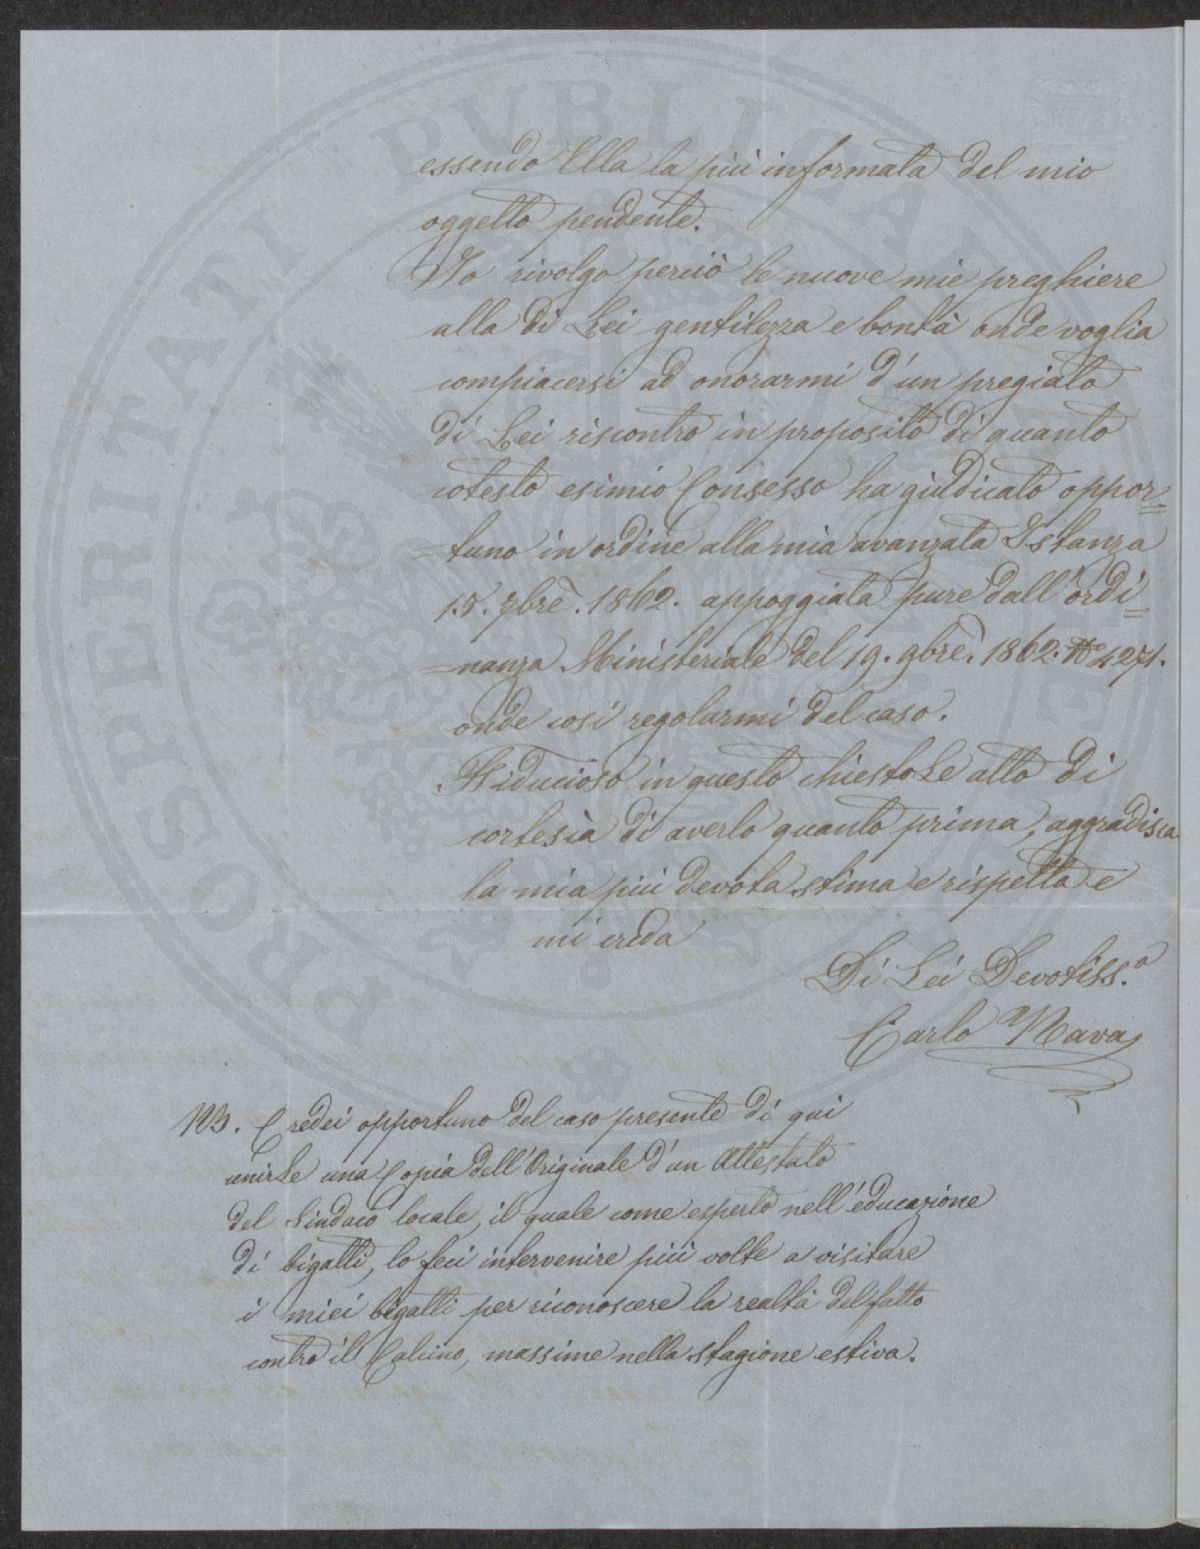 essendo Ella la più informata del mio
oggetto pendente.
Io rivolgo perciò le nuove mie preghiere
alla di Lei gentilezza e bontà onde voglia
compiacersi ad onorarmi d'un pregiato
di Lei riscontro in proposito di quanto
cotesto esimio Consesso ha giudicato oppor=
=tuno in ordine alla mia avanzata Istanza
15. 7bre. 1862. appoggiata pure dall'ordi=
=nanza Ministeriale del 19. 9bre. 1862. No 4271.
onde così regolarmi del caso.
Fiducioso in questo chiestoLe atto di
cortesia di averlo quanto prima, aggradisca
la mia più devota stima e rispetto e
mi creda
Di Lei Devotiss.o
Carlo Nava
NB. Credei opportuno del caso presente di qui
unirLe una Copia dell'Originale d'un Attestato
del Sindaco locale, il quale come esperto nell'educazione
di bigatti, lo feci intervenire più volte a visitare
i miei bigatti per riconoscere la realtà del fatto
contro il Calcino, massime nella stagione estiva.
PROSPERITATI PUBLICAE